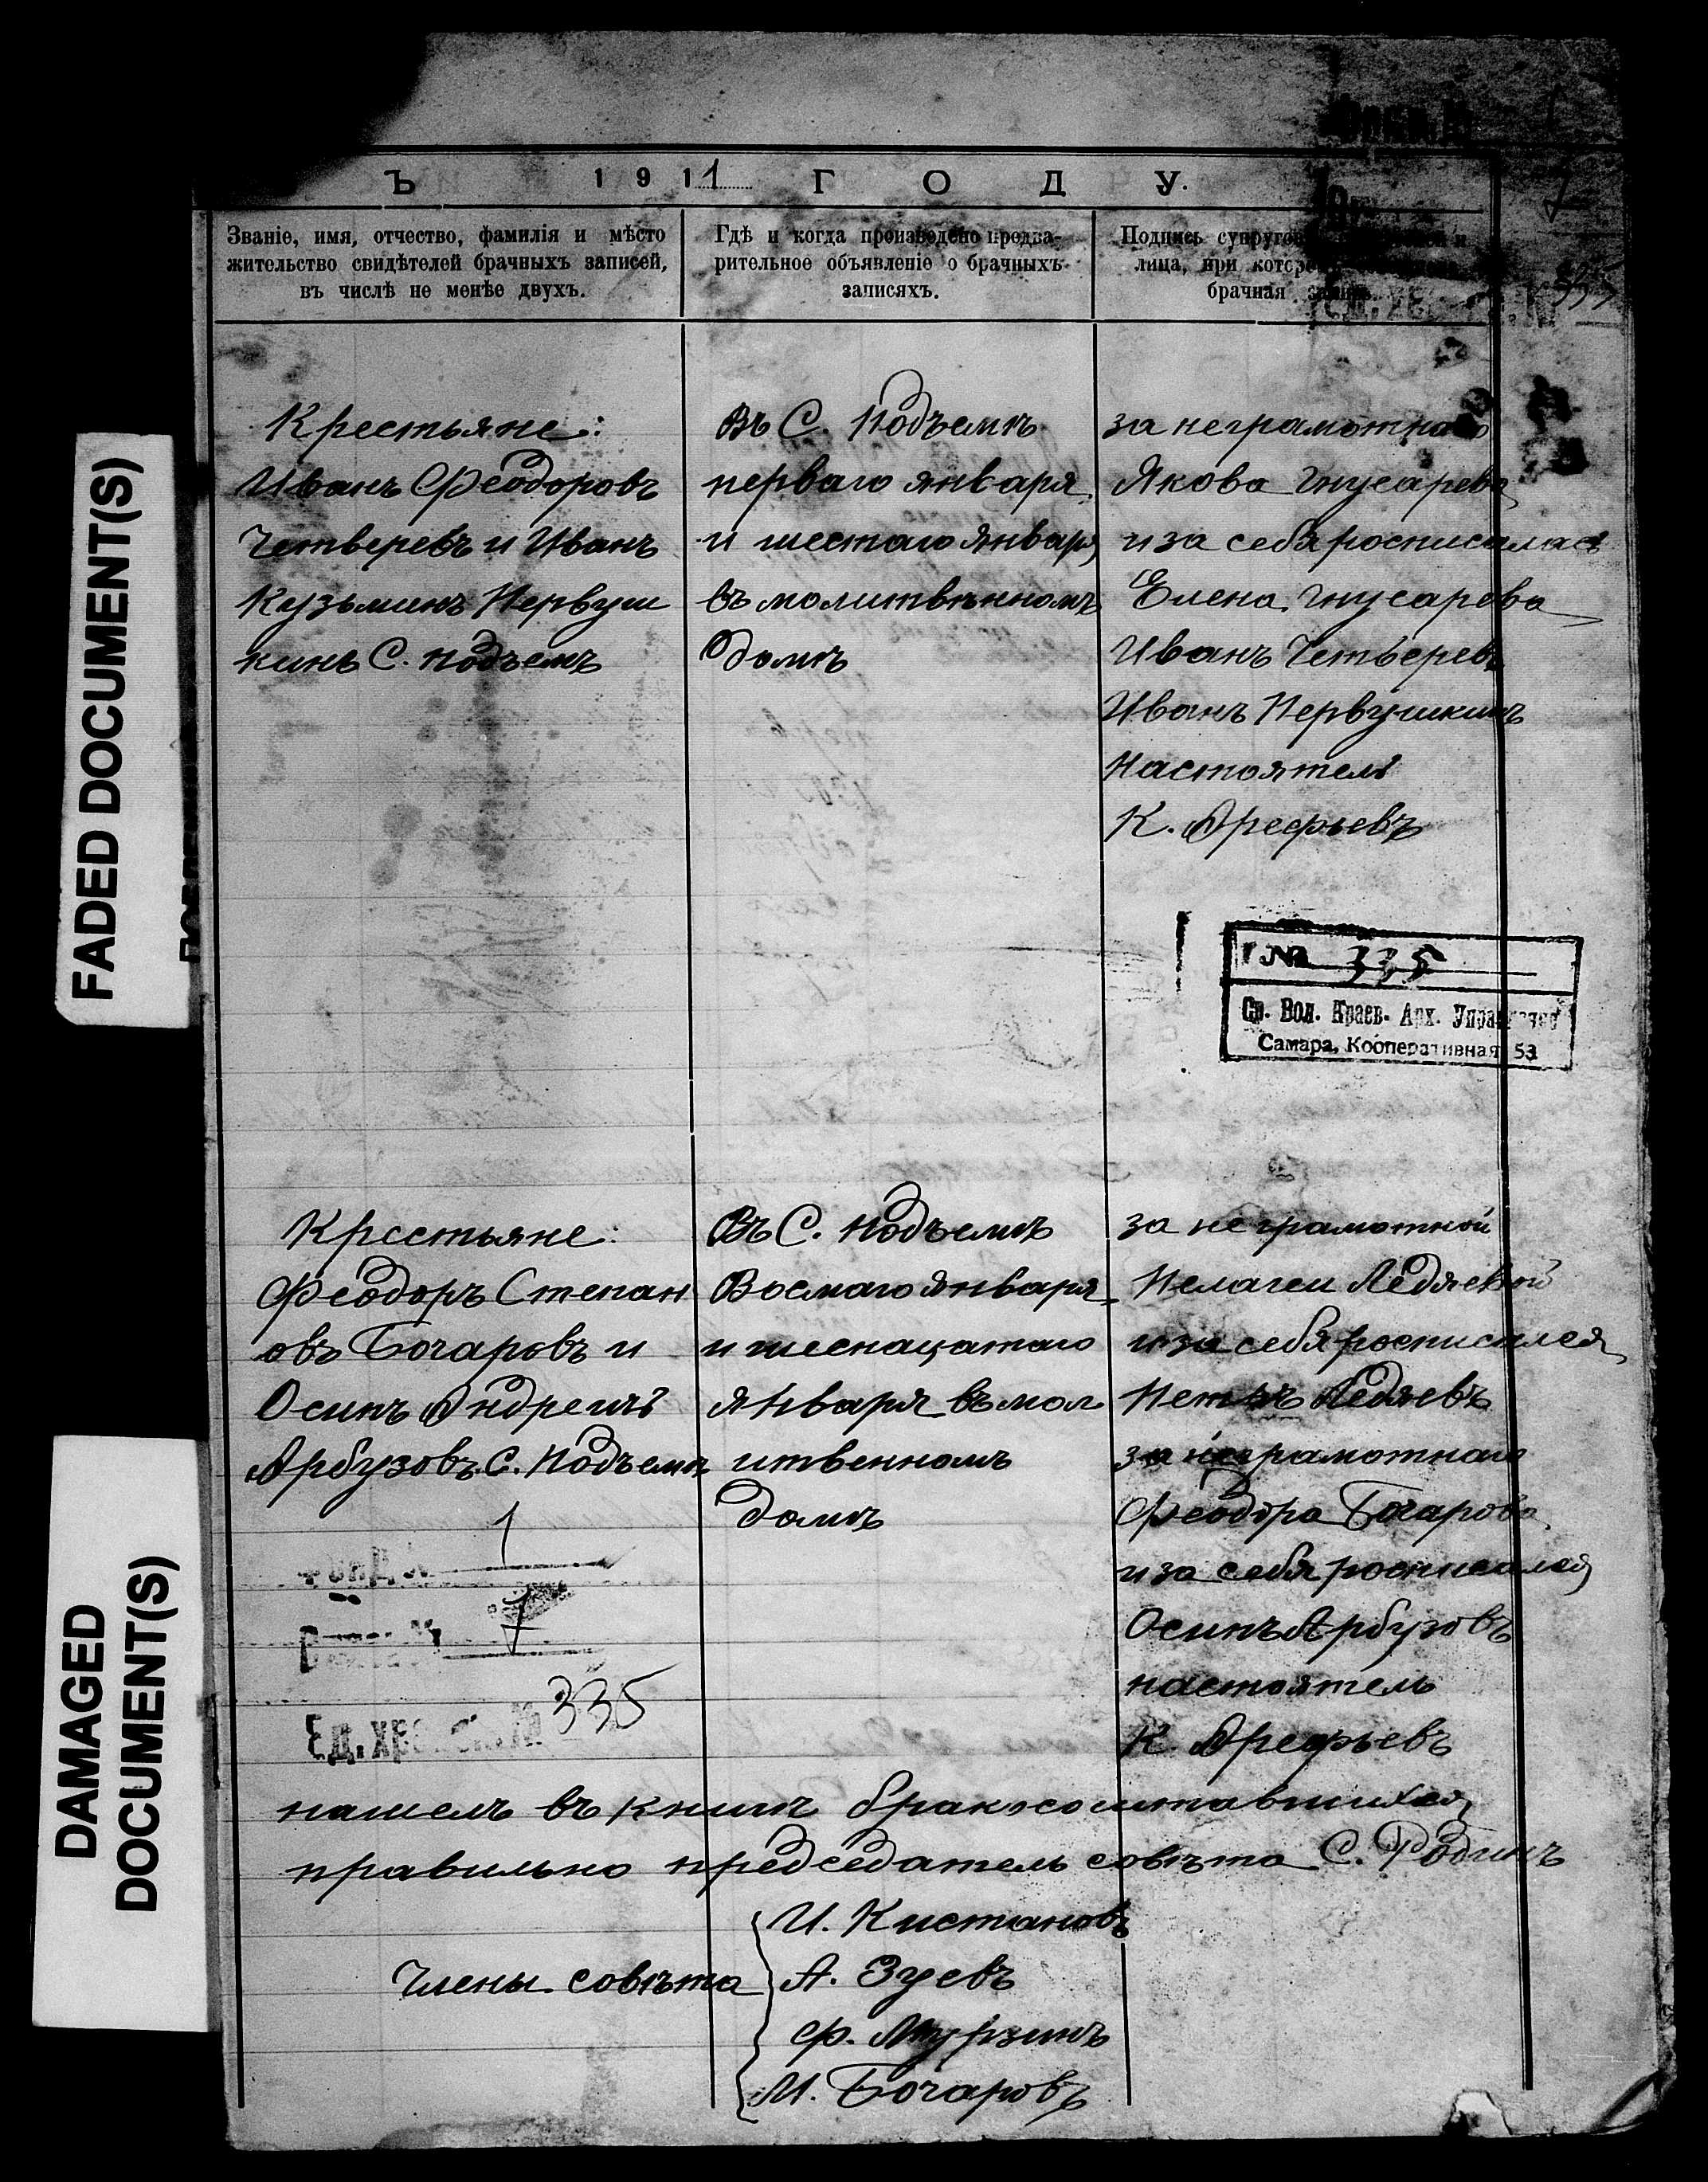 Ъ 1911 ГОДУ.
Званіе, имя, отчество, фамилія и мѣсто
жительство свидѣтелей брачныхъ записей,
въ числѣ не менѣе двухъ.
Гдѣ и когда произведено предва-
рительное объявленіе о брачныхъ
записяхъ.
Подпись супруговъ
лица, при
брачная
Крестьяне:
Иванъ Феодоровъ
Четверевъ и Иванъ
Кузьминъ Первуш
кинъ С. Подъемъ
Въ С. Подъемѣ
перваго января
и шестаго января
въ молитвѣнномъ
домѣ
за неграмотнаго
Якова Гнусарева
и за себя росписалас
Елена Гнусарева
Иванъ Четверевъ
Иванъ Первушкинъ
Настоятель
К. Арефьевъ
№ 335
Ср. Вол. Краев. Арх. Управление
Самара, Кооперативная 53
Крестьяне:
Феодоръ Степан
овъ Бочаровъ и
Осипъ Андреичъ
Арбузовъ С. Подъемъ
Въ С. Подъемѣ
Восмаго января
и шеснацатаго
января въ мол
итвенномъ
домѣ
за не грамотной
Пелагеи Ледяевой
и за себя росписался
Петръ Ледяевъ
за неграмотнаго
Феодора Бочарова
и за себя росписался
Осипъ Арбузовъ
настоятель
К. Арефьевъ
1
7
Ед. хр 335
нашелъ въ книге
правильно председатель совѣта С. Родинъ
Члены совѣта
И. Кистановъ
А. Зуевъ
Ф. Мурзинъ
М. Бочаровъ
FADED DOCUMENT(S)
DAMAGED
DOCUMENT(S)